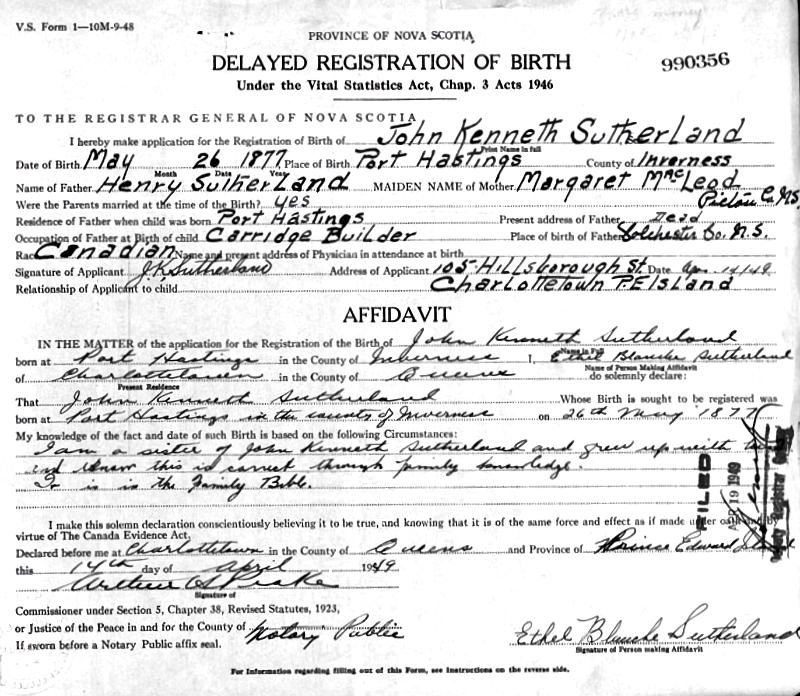 V.S. Form 1—10M-9-48
PROVINCE OF NOVA SCOTIA
DELAYED REGISTRATION OF BIRTH
990356
Under the Vital Statistics Act, Chap. 3 Acts 1946
TO THE REGISTRAR GENERAL OF NOVA SCOTIA
I hereby make application for the Registration of Birth of John Kenneth Sutherland
Print Name in full
Date of Birth May 26 1877 Place of Birth Port Hastings County of Inverness
Month Date Year
Name of Father Henry Sutherland MAIDEN NAME of Mother Margaret MacLeod
Were the Parents married at the time of the Birth? yes Pictou Co. N.S.
Residence of Father when child was born Port Hastings Present address of Father Dead
Occupation of Father at Birth of child Carridge Builder Place of birth of Father Colchester Co. N.S.
Race Canadian Name and present address of Physician in attendance at birth
Signature of Applicant J.K. Sutherland Address of Applicant 105 Hillsborough St. Date Apr. 14/49
Relationship of Applicant to child Charlottetown P.E Island
AFFIDAVIT
IN THE MATTER of the application for the Registration of the Birth of John Kenneth Sutherland
Name in Full
born at Port Hastings in the County of Inverness I, Ethel Blanche Sutherland
Name of Person Making Affidavit
of Charlottetown in the County of Queens do solemnly declare:
Present Residence
That John Kenneth Sutherland Whose Birth is sought to be registered was
born at Port Hastings in the county of Inverness on 26th May 1877
My knowledge of the fact and date of such Birth is based on the following Circumstances:
I am a sister of John Kenneth Sutherland and grew up with
and know this is correct through family knowledge.
It is in the Family Bible.
FILED
APR 19 1949
Deputy Registrar
I make this solemn declaration conscientiously believing it to be true, and knowing that it is of the same force and effect as if made under oath and by
virtue of The Canada Evidence Act.
Declared before me at Charlottetown in the County of Queens and Province of Prince Edward Island
this 14th day of April 1949
Signature of
Commissioner under Section 5, Chapter 38, Revised Statutes, 1923,
or Justice of the Peace in and for the County of Notary Public
If sworn before a Notary Public affix seal.
Ethel Blanche Sutherland
Signature of Person making Affidavit
For Information regarding filling out of this Form, see Instructions on the reverse side.